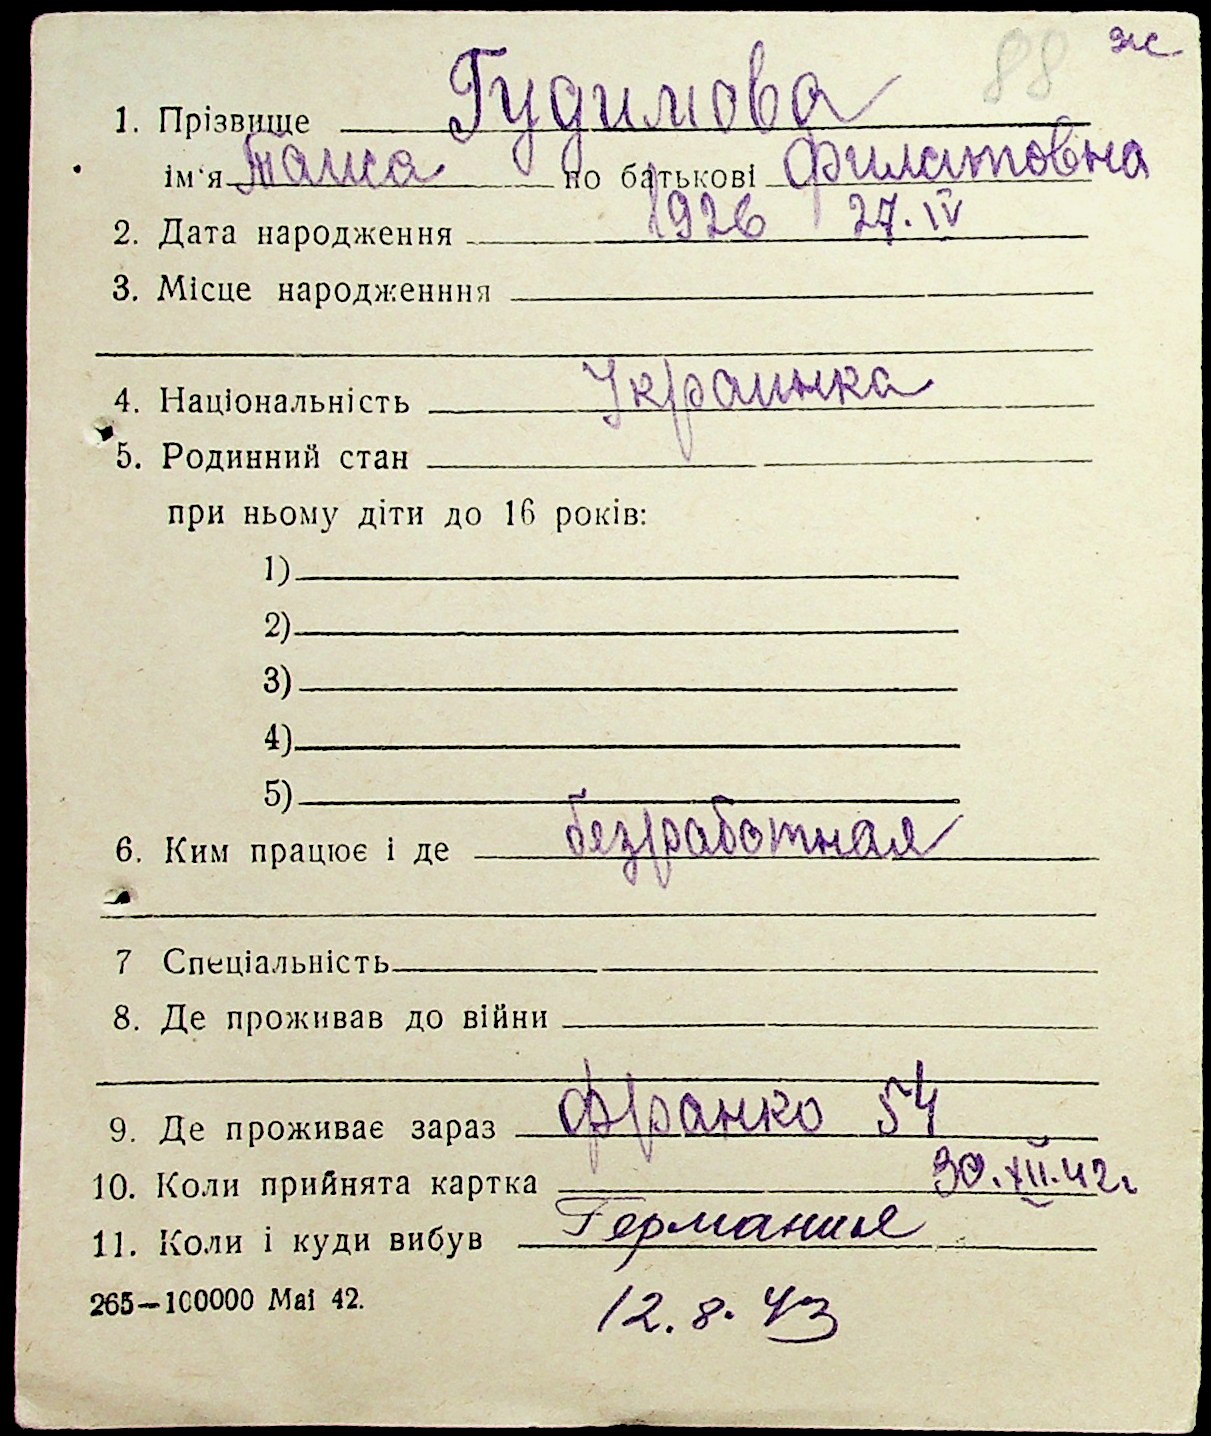 88 ж
1. Прізвище Гудимова
ім'я Таиса по батькові Филатовна
2. Дата народження 1926 27.IV
3. Місце народженння
4. Національність Украинка
5. Родинний стан
при ньому діти до 16 років:
1)
2)
3)
4)
5)
6. Ким працює і де безработная
7 Спеціальність
8. Де проживав до війни
9. Де проживає зараз Франко 54
10. Коли прийнята картка 30.XII.42г.
11. Коли і куди вибув Германия
265—100000 Mai 42. 12.8.43